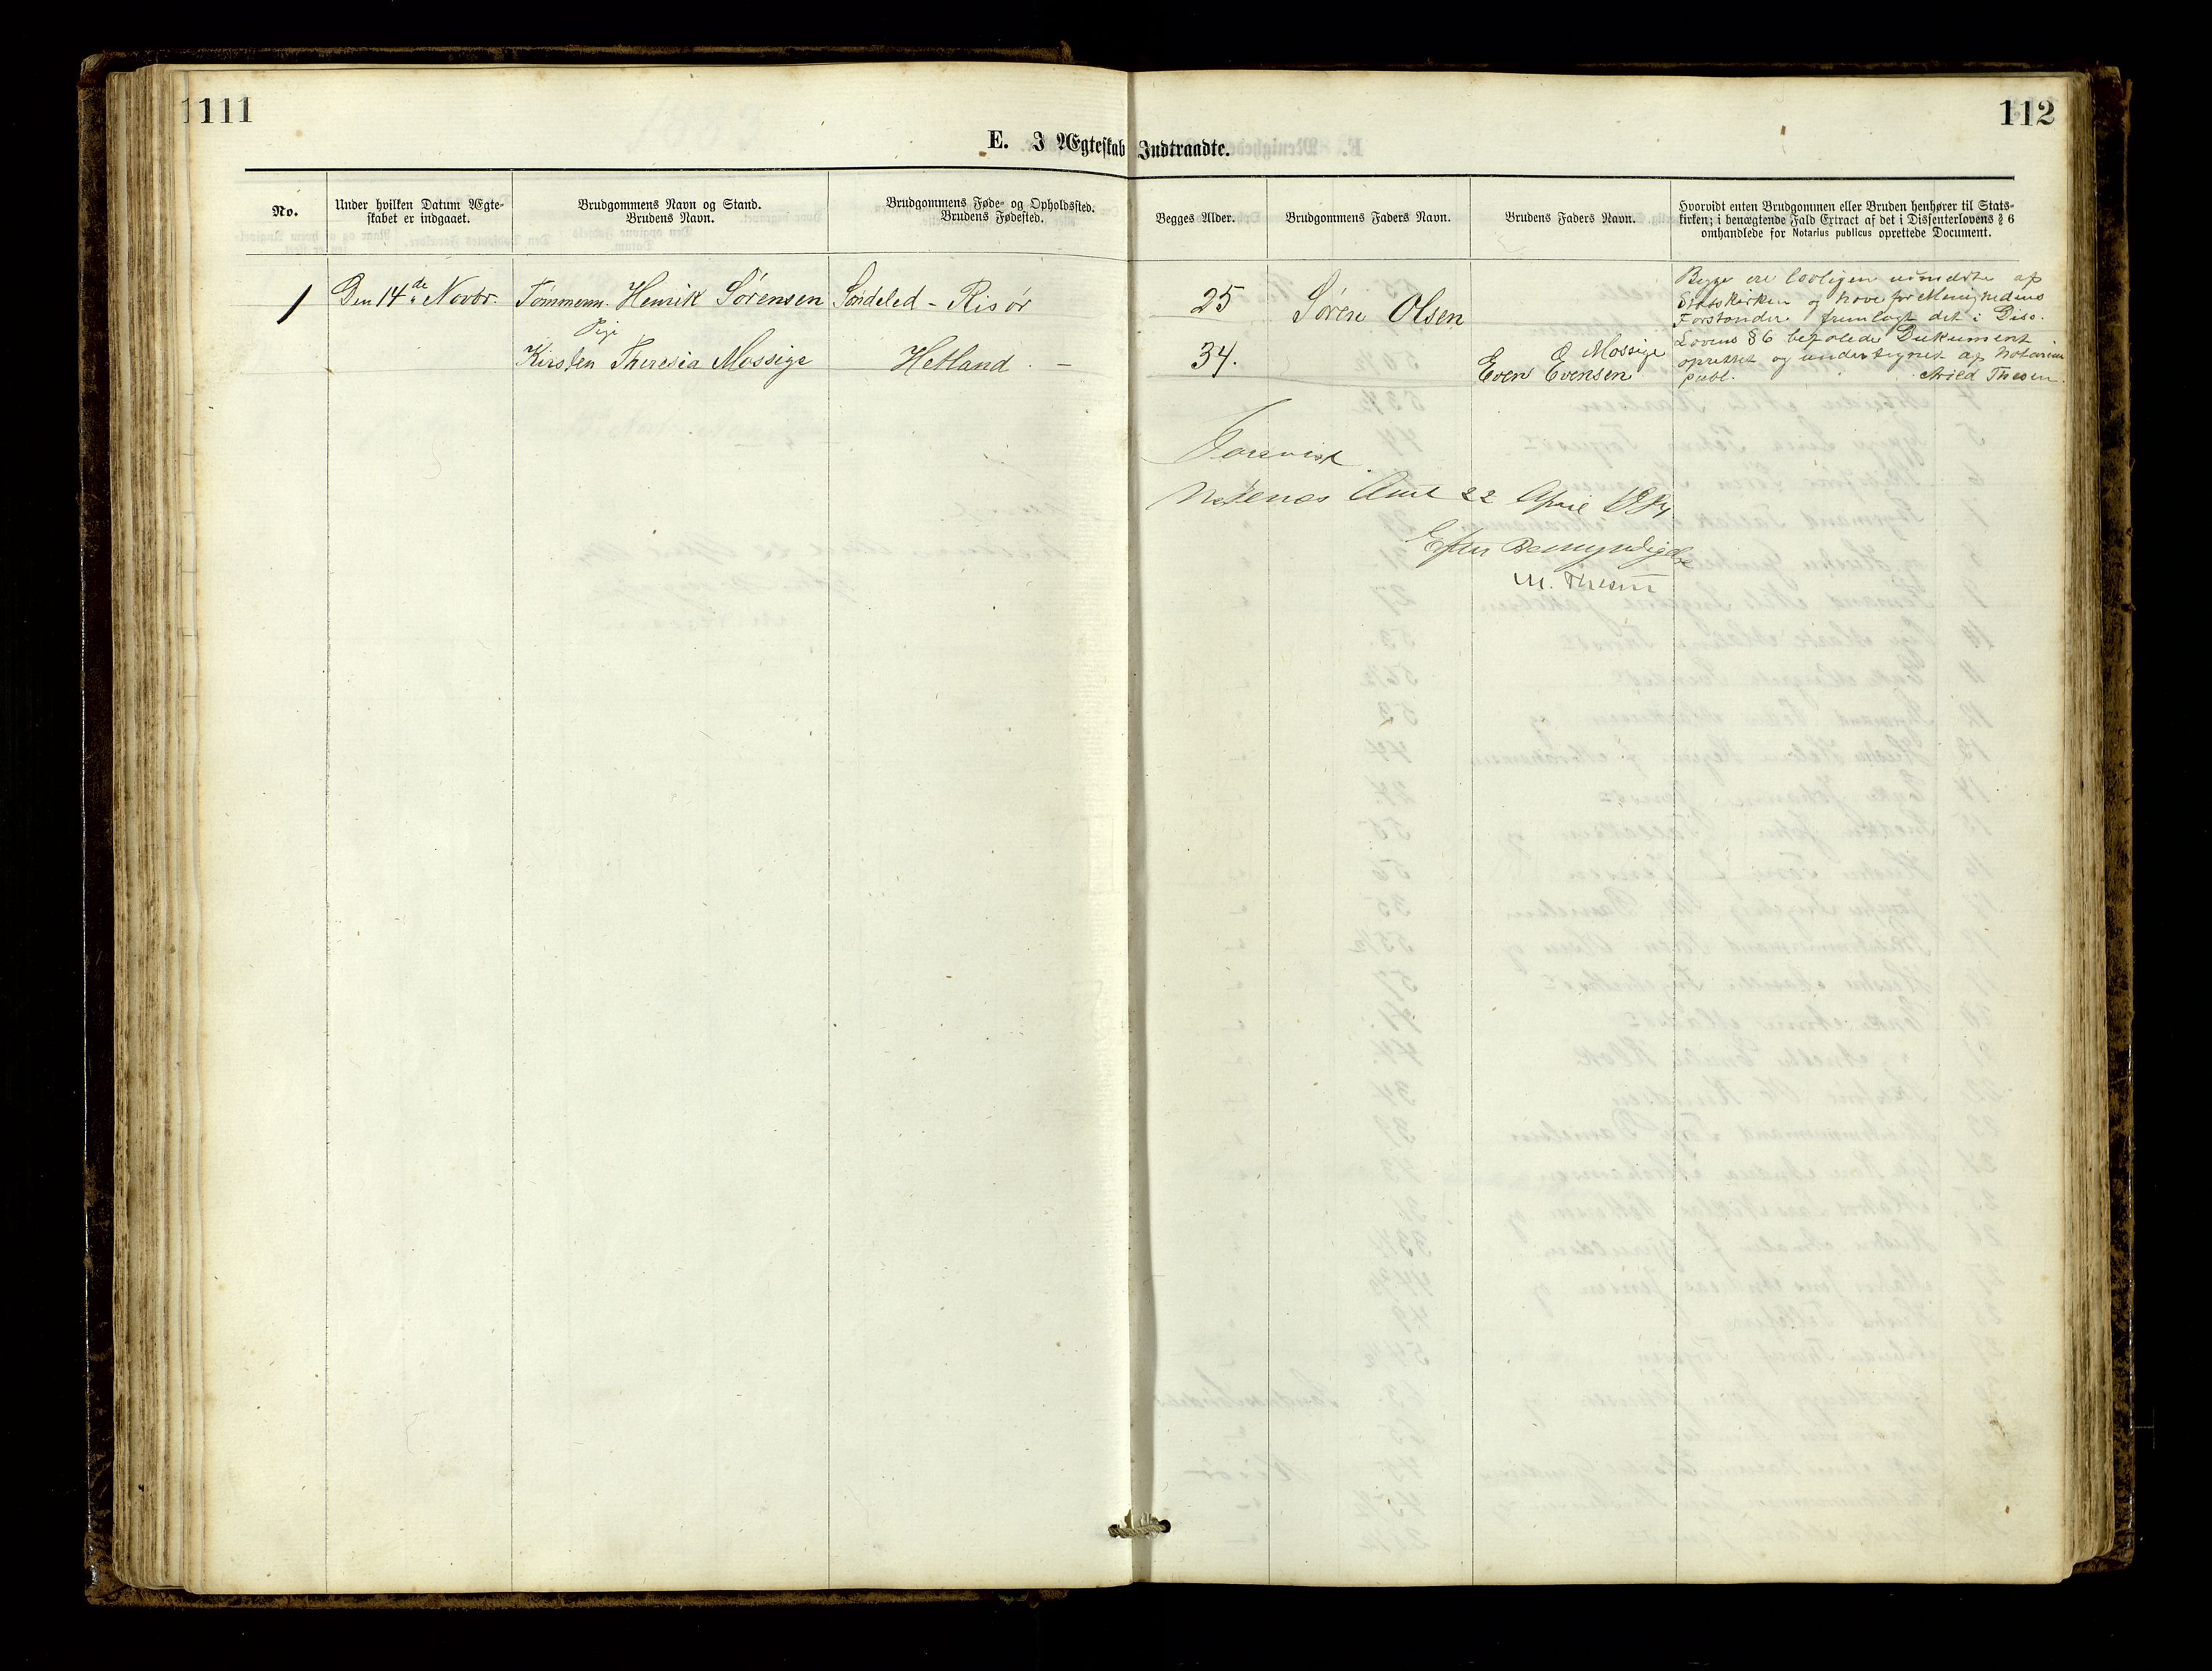 111
112
E. I Ægteskab Indtraadte.
No.
Under hvilken Datum Ægte-
skabet er indgaaet.
Brudgommens Navn og Stand.
Brudens Navn.
Brudgommens Føde- og Opholdssted.
Brudens Fødested.
Begges Alder.
Brudgommens Faders Navn.
Brudens Faders Navn.
Hvorvidt enten Brudgommen eller Bruden henhører til Stats-
kirken; i benægtende Fald Extract af det i Dissenterlovens § 6
omhandlede for Notarius publicus oprettede Document.
1 Den 14de Novbr. Tømmerm. Henrik Sørensen Søndeled - Risør 25 Søren Olsen
Pige
Kirsten Theresia Mossige Hetland - 34. E. Mossige
Even Evensen
Begge ere lovligen udmeldte af
Statskirken og have for Menighedens
Forstander fremlagt det i Diss.
Lovens § 6 befalede Dokument
oprettet og undertegnet af Notarius
publ. Arild Thesen.
Forevist
Nedenes Amt 22 April 1884
Efter Bemyndigelse
M. Thesen